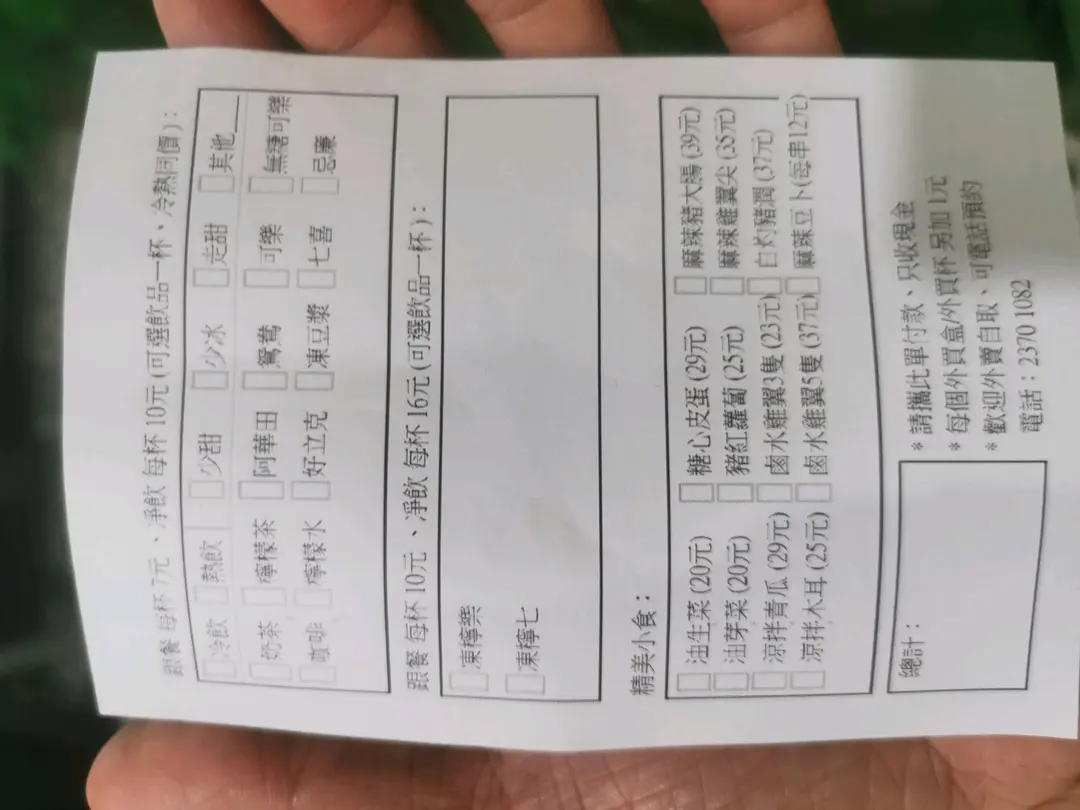 跟餐 每杯 7元 、凈飲 每杯 10元 (可選飲品一杯、冷熱同價)：
冷飲 熱飲 少甜 少冰 走甜 其他___
奶茶 檸檬茶 阿華田 鴛鴦 可樂 無糖可樂
咖啡 檸檬水 好立克 凍豆漿 七喜 忌廉
跟餐 每杯 10元 、凈飲 每杯 16元 (可選飲品一杯)：
凍檸樂
凍檸七
精美小食：
油生菜 (20元) 糖心皮蛋 (29元) 麻辣豬大腸 (39元)
油芽菜 (20元) 豬紅蘿蔔 (25元) 麻辣雞翼尖 (35元)
涼拌青瓜 (29元) 鹵水雞翼3隻 (23元) 白灼豬潤 (37元)
涼拌木耳 (25元) 鹵水雞翼5隻 (37元) 麻辣豆卜(每串12元)
總計：
* 請攜此單付款、只收現金
* 每個外買盒/外買杯 另加 1元
* 歡迎外賣自取、可電話預約
電話：2370 1082